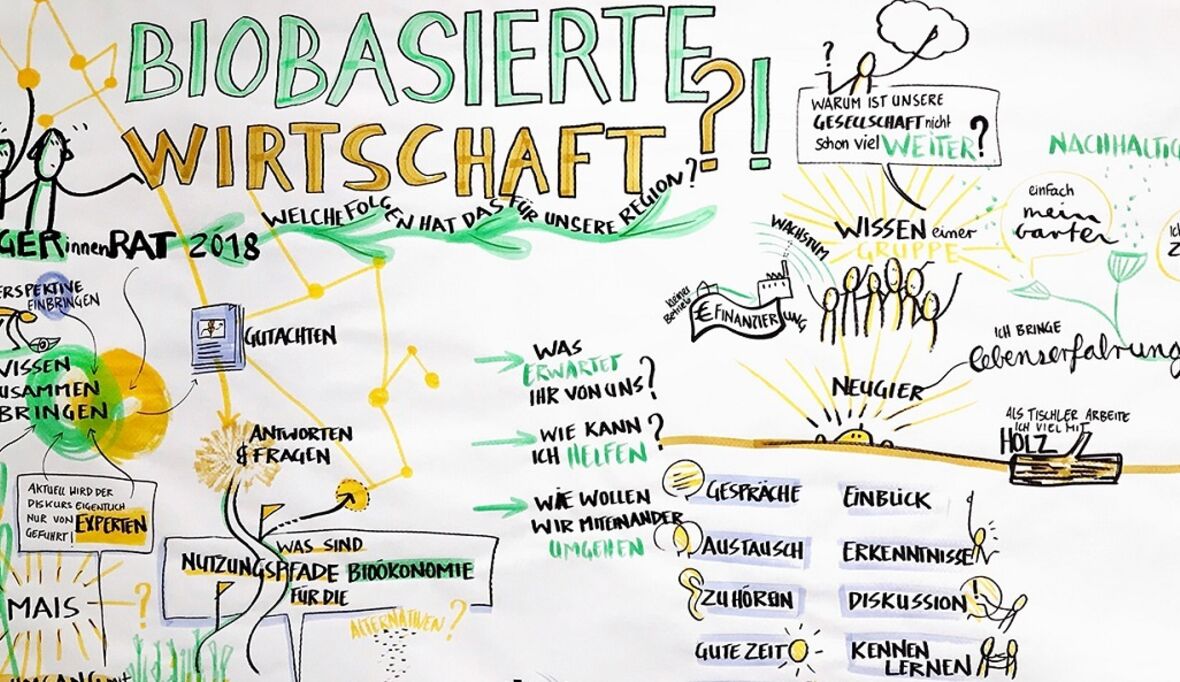 BIOBASIERTE
WIRTSCHAFT?!
WELCHE FOLGEN HAT DAS FÜR UNSERE REGION?
GERinnenRAT 2018
PERSPEKTIVE
EINBRINGEN
WISSEN
ZUSAMMEN
BRINGEN
AKTUELL WIRD DER
DISKURS EIGENTLICH
NUR VON EXPERTEN
GEFÜHRT!
MAIS
?
UMGANG MIT
GUTACHTEN
ANTWORTEN
& FRAGEN
WAS SIND
NUTZUNGSPFADE BIOÖKONOMIE
FÜR DIE
ALTERNATIVEN?
WAS
ERWARTET
IHR VON UNS?
WIE KANN
ICH HELFEN?
WIE WOLLEN
WIR MITEINANDER
UMGEHEN
?
WARUM IST UNSERE
GESELLSCHAFT nicht
schon viel WEITER?
NACHHALTIG
WISSEN einer
GRUPPE
WACHSTUM
kleiner
Betrieb
€ FINANZIERUNG
einfach
mein
Garten
ICH BRINGE
Lebenserfahrung
NEUGIER
ALS TISCHLER ARBEITE
ICH VIEL MIT
HOLZ
GESPRÄCHE
AUSTAUSCH
ZUHÖREN
GUTE ZEIT
EINBLICK
ERKENNTNISSE
DISKUSSION
KENNEN
LERNEN